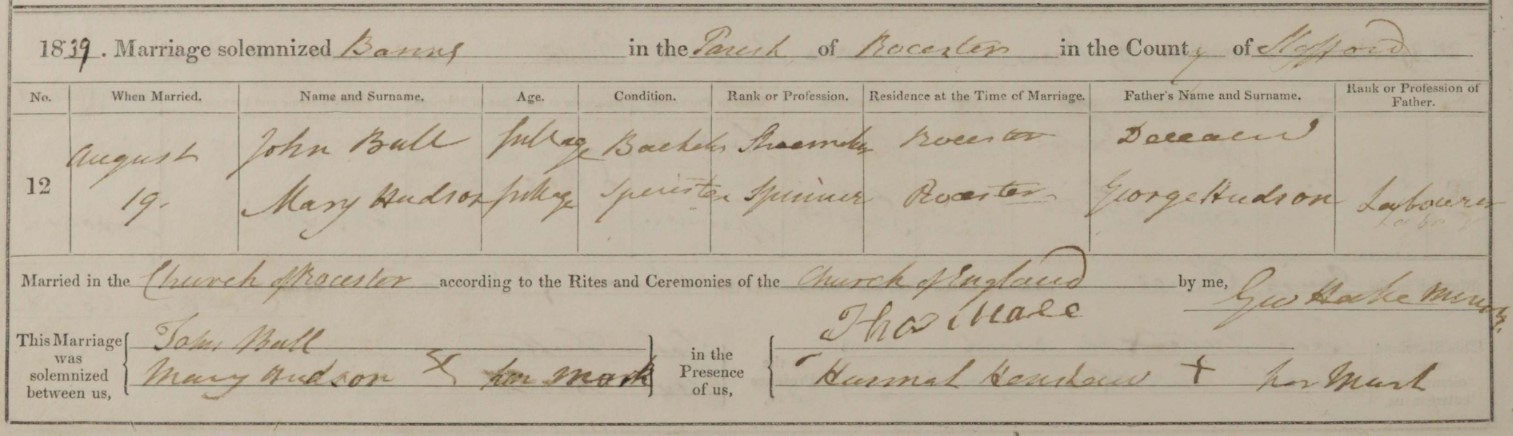 1839. Marriage solemnized Banns in the Parish of Rocester in the County of Stafford
No. When Married. Name and Surname. Age. Condition. Rank or Profession. Residence at the Time of Marriage. Father's Name and Surname. Rank or Profession of Father.
12 August 19. John Bull full age Bachelor Shoemaker Rocester Deceased
Mary Hudson full age Spinster Spinner Rocester George Hudson Labourer
Married in the Church of Rocester according to the Rites and Ceremonies of the Church of England by me, Geo Hake
This Marriage was solemnized between us, John Bull in the Presence of us, Thos
Mary Hudson X her mark Hannah Henshaw X her Mark